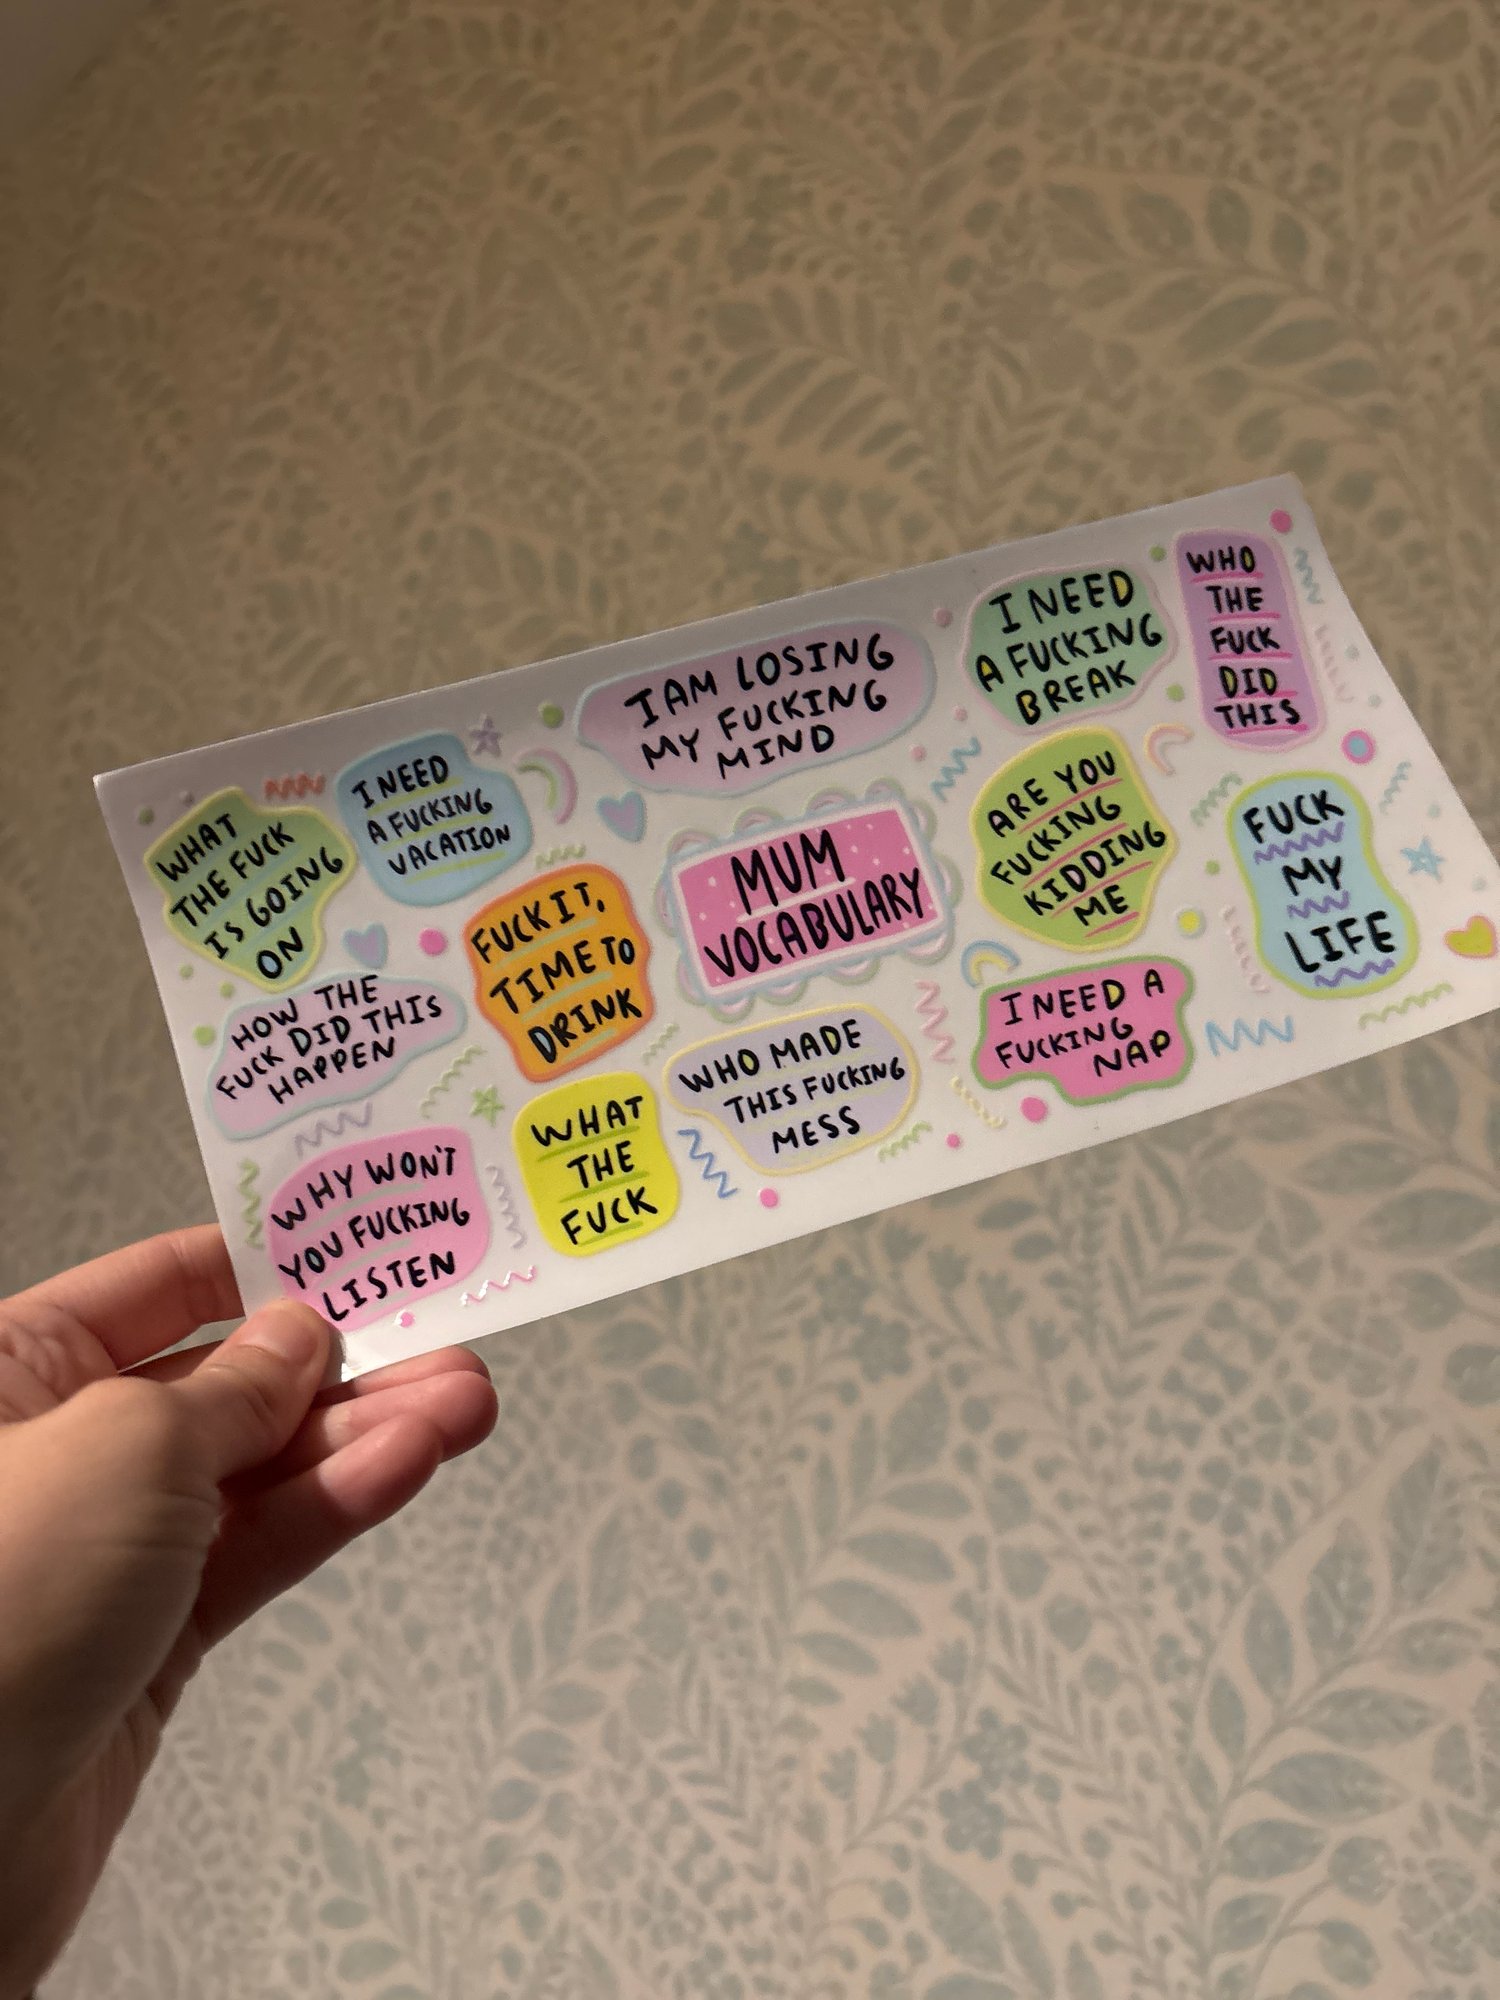 WHAT
THE FUCK
IS GOING
ON
I NEED
A FUCKING
VACATION
I AM LOSING
MY FUCKING
MIND
I NEED
A FUCKING
BREAK
WHO
THE
FUCK
DID
THIS
HOW THE
FUCK DID THIS
HAPPEN
FUCK IT,
TIME TO
DRINK
MUM
VOCABULARY
ARE YOU
FUCKING
KIDDING
ME
FUCK
MY
LIFE
WHY WON'T
YOU FUCKING
LISTEN
WHAT
THE
FUCK
WHO MADE
THIS FUCKING
MESS
I NEED A
FUCKING
NAP